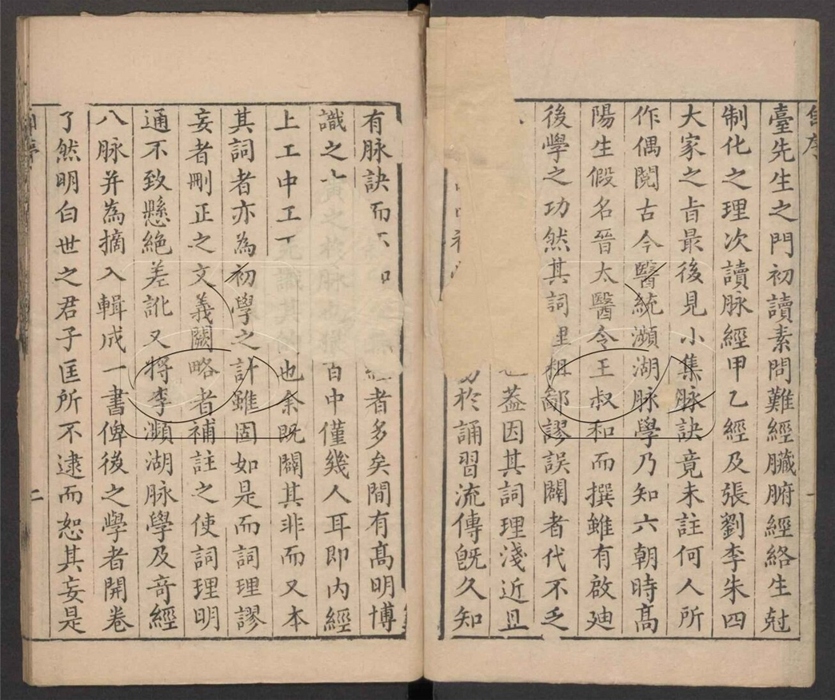 臺先生之門初讀素問難經臟腑經絡生尅
制化之理次讀脉經甲乙經及張劉李朱四
大家之旨最後見小集脉訣竟未註何人所
作偶閱古今醫統瀕湖脉學乃知六朝時髙
陽生假名晉太醫令王叔和而撰雖有啟廸
後學之功然其詞理粗鄙謬誤闢者代不乏
也蓋因其詞理淺近且
於誦習流傳旣久知
有脉訣而不知
經者多矣間有髙明博
識之士
百中僅幾人耳即内經
上工中工下
也余旣闢其非而又本
其詞者亦為初學之計雖固如是而詞理謬
妄者刪正之文義闕略者補註之使詞理明
通不致懸絕差訛又將李瀕湖脉學及奇經
八脉并為摘入輯成一書俾後之學者開卷
了然明白世之君子匡所不逮而恕其妄是
二